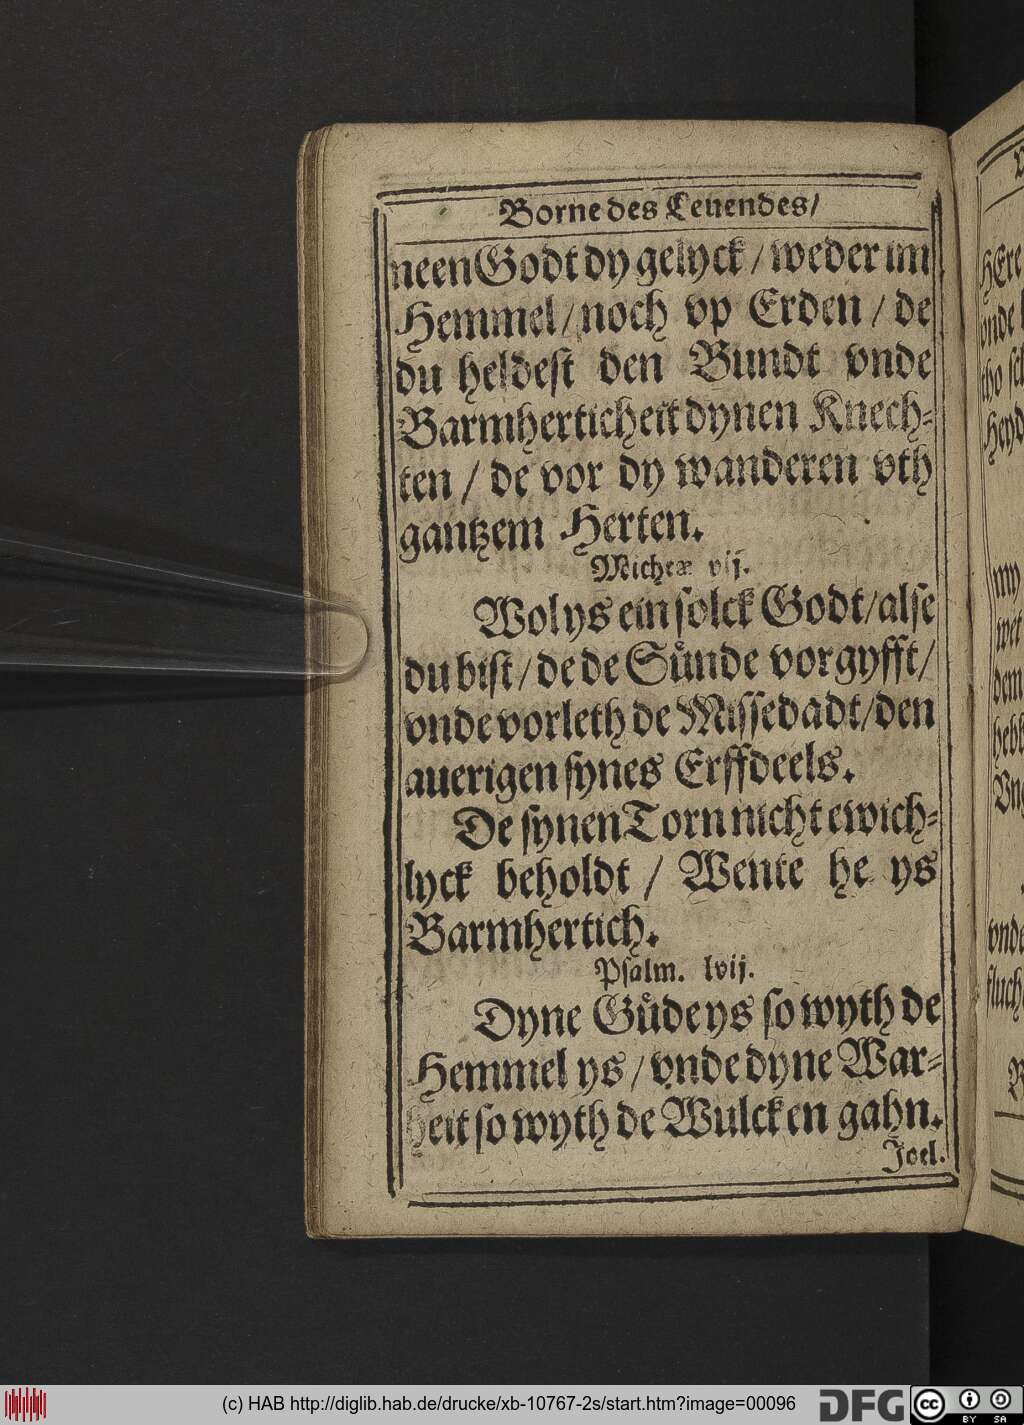 Borne des Leuendes/
neen Godt dy gelyck / weder im
Hemmel / noch vp Erden / de
du heldest den Bundt vnde
Barmherticheit dynen Knech-
ten / de vor dy wanderen vth
gantzem Herten.
Micheæ vij.
Wol ys ein solck Godt / alse
du bist / de de Sůnde vorgyfft /
vnde vorleth de Missedadt / den
auerigen synes Erffdeels.
De synen Torn nicht ewich-
lyck beholdt / Wente he ys
Barmhertich.
Psalm. lvij.
Dyne Gůde ys so wyth de
Hemmel ys / vnde dyne War-
heit so wyth de Wulcken gahn.
Joel.
HEre
vnde
tho
my
wet
dem
vnde
(c) HAB http://diglib.hab.de/drucke/xb-10767-2s/start.htm?image=00096
DFG
cc
BY SA